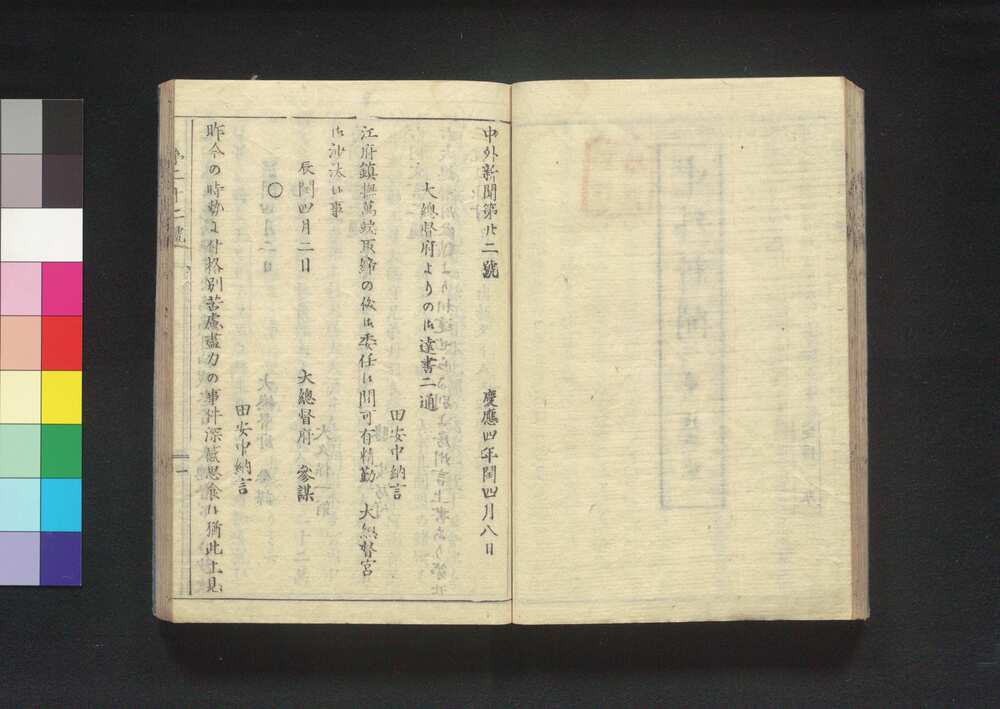 中外新聞第廿二號　慶應四年閏四月八日
大總督府よりの御達書二通
田安中納言
江府鎮撫萬端取締の儀御委任候間可有精勤　大總督宮
御沙汰候事
辰閏四月二日　大總督府　參謀
○
田安中納言
昨今の時勢に付格別苦慮盡力の事件深感思食候猶此上見